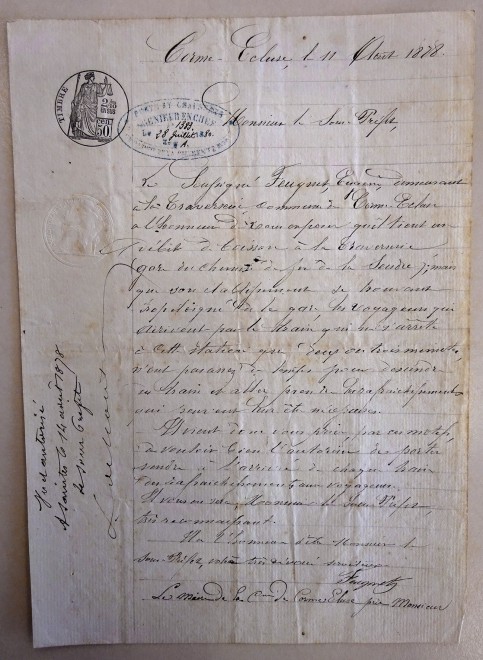 Corme-Ecluse, le 11 Août 1878.
TIMBRE
50
PONTS ET CHAUSSÉES
INGÉNIEUR EN CHEF
Le 28 Juillet 188
Monsieur le Sous-Préfet,
Le Soussigné demeurant
à la Traverserie commune de Corme-Ecluse
à l'honneur de vous exposer qu'il tient un
débit de boisson à la Traverserie
gare du chemin de fer de la Seudre; mais
que son établissement se trouvant
de la gare les voyageurs qui
arrivent par le train qui ne s'arrête
à cette station que deux ou trois minutes
n'ont pas assez de temps pour descendre
du train et aller prendre les rafraîchissements
qui peuvent leur être nécessaires.
Il vient donc vous prier par ces motifs,
à vouloir bien l'autoriser de porter
vendre à l'arrivée de chaque train
des rafraîchissements aux voyageurs.
Il vous en sera, Monsieur le Sous-Préfet,
très reconnaissant.
l'honneur d'être Monsieur le
Sous-Préfet, votre très dévoué serviteur
Le maire de la Cne de Corme Ecluse prie Monsieur
Vu et autorisé
A Saintes le 14 août 1878
Le Sous Préfet